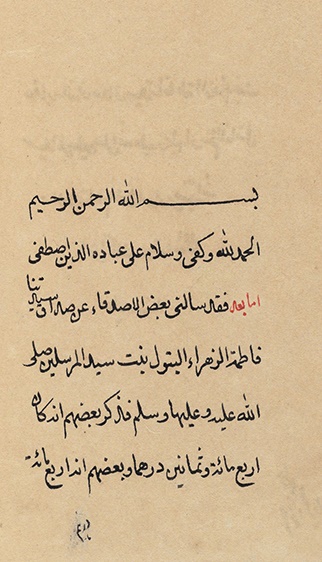 بسم الله الرحمن الرحيم
الحمد لله وكفى وسلام على عباده الذين اصطفى
اما بعد فقد سالنى بعض الاصدقاء عن صداق سيدتنا
فاطمة الزهراء البتول بنت سيد المرسلين صلى
الله عليه وعليها وسلم فذكر بعضهم انه كان
اربع مائة وثمانين درهما وبعضهم انه اربع مائة